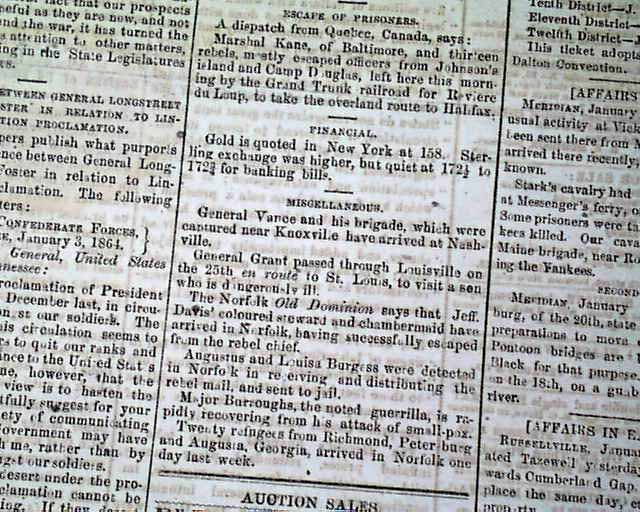 fact that our prospects
as they are now, and not
and the war, it has turned the
attention to other matters,
ing in the State Legislatures
BETWEEN GENERAL LONGSTREET
IN RELATION TO LIN-
PROCLAMATION.
pers publish what purports
ence between General Long-
Foster in relation to Lin-
clamation. The following
ters:
CONFEDERATE FORCES,
January 3, 1864.
General, United States
nnessee:
roclamation of President
December last, in circu-
st our soldiers. The
his circulation seems to
rs to quit our ranks and
ance to the United Stat s
me, however, that the
view is to hasten the
fully suggest for your
ety of communicating
overnment may have
h me, rather than by
ngst our soldiers.
desert under the pro-
clamation cannot be
ing. If they deser
ESCAPE OF PRISONERS.
A dispatch from Quebec, Canada, says:
Marshal Kane, of Baltimore, and thirteen
rebels, mostly escaped officers from Johnson's
island and Camp D uglas, left here this morn-
ing by the Grand Trunk railroad for Riviere
du Loup, to take the overland route to Halifax.
FINANCIAL.
Gold is quoted in New York at 158. Ster-
ling exchange was higher, but quiet at 172½ to
172¾ for banking bills.
MISCELLANEOUS.
General Vance and his brigade, which were
captured near Knoxville have arrived at Nash-
ville.
General Grant passed through Louisville on
the 25th en route to St. Louis, to visit a son
who is dangerously ill.
The Norfolk Old Dominion says that Jeff.
Davis' coloured steward and chambermaid have
arrived in Norfolk, having successfully escaped
from the rebel chief.
Augustus and Louisa Burgess were detected
in Norfolk in re eiving and distributing the
rebel mail, and sent to jail.
Major Burroughs, the noted guerrilla, is ra-
pidly recovering from his attack of small-pox.
Twenty refugees from Richmond, Peter burg
and Augusta, Georgia, arrived in Norfolk one
day last week.
AUCTION SALES
Tenth District—J.
Eleventh District—
Twelfth District—J
This ticket adopt
Dalton Convention.
[AFFAIRS
MERIDIAN, January
usual activity at Vic
been sent there from M
arrived there recently
known.
Stark's cavalry had
at Messenger's ferry, o
Some prisoners were ta
kees killed. Our cava
Maine brigade, near Ro
ing the Yankees.
SECOND
MERIDIAN, January
burg, of the 20th, state
preparations to mova
Pontoon bridges are
Black for that purpose.
on the 18th, on a gu
river.
[AFFAIRS IN E
RUSSELLVILLE, Janua
ated Tazewell y sterda
wards Cumberland Gap.
place the same day, c
property.